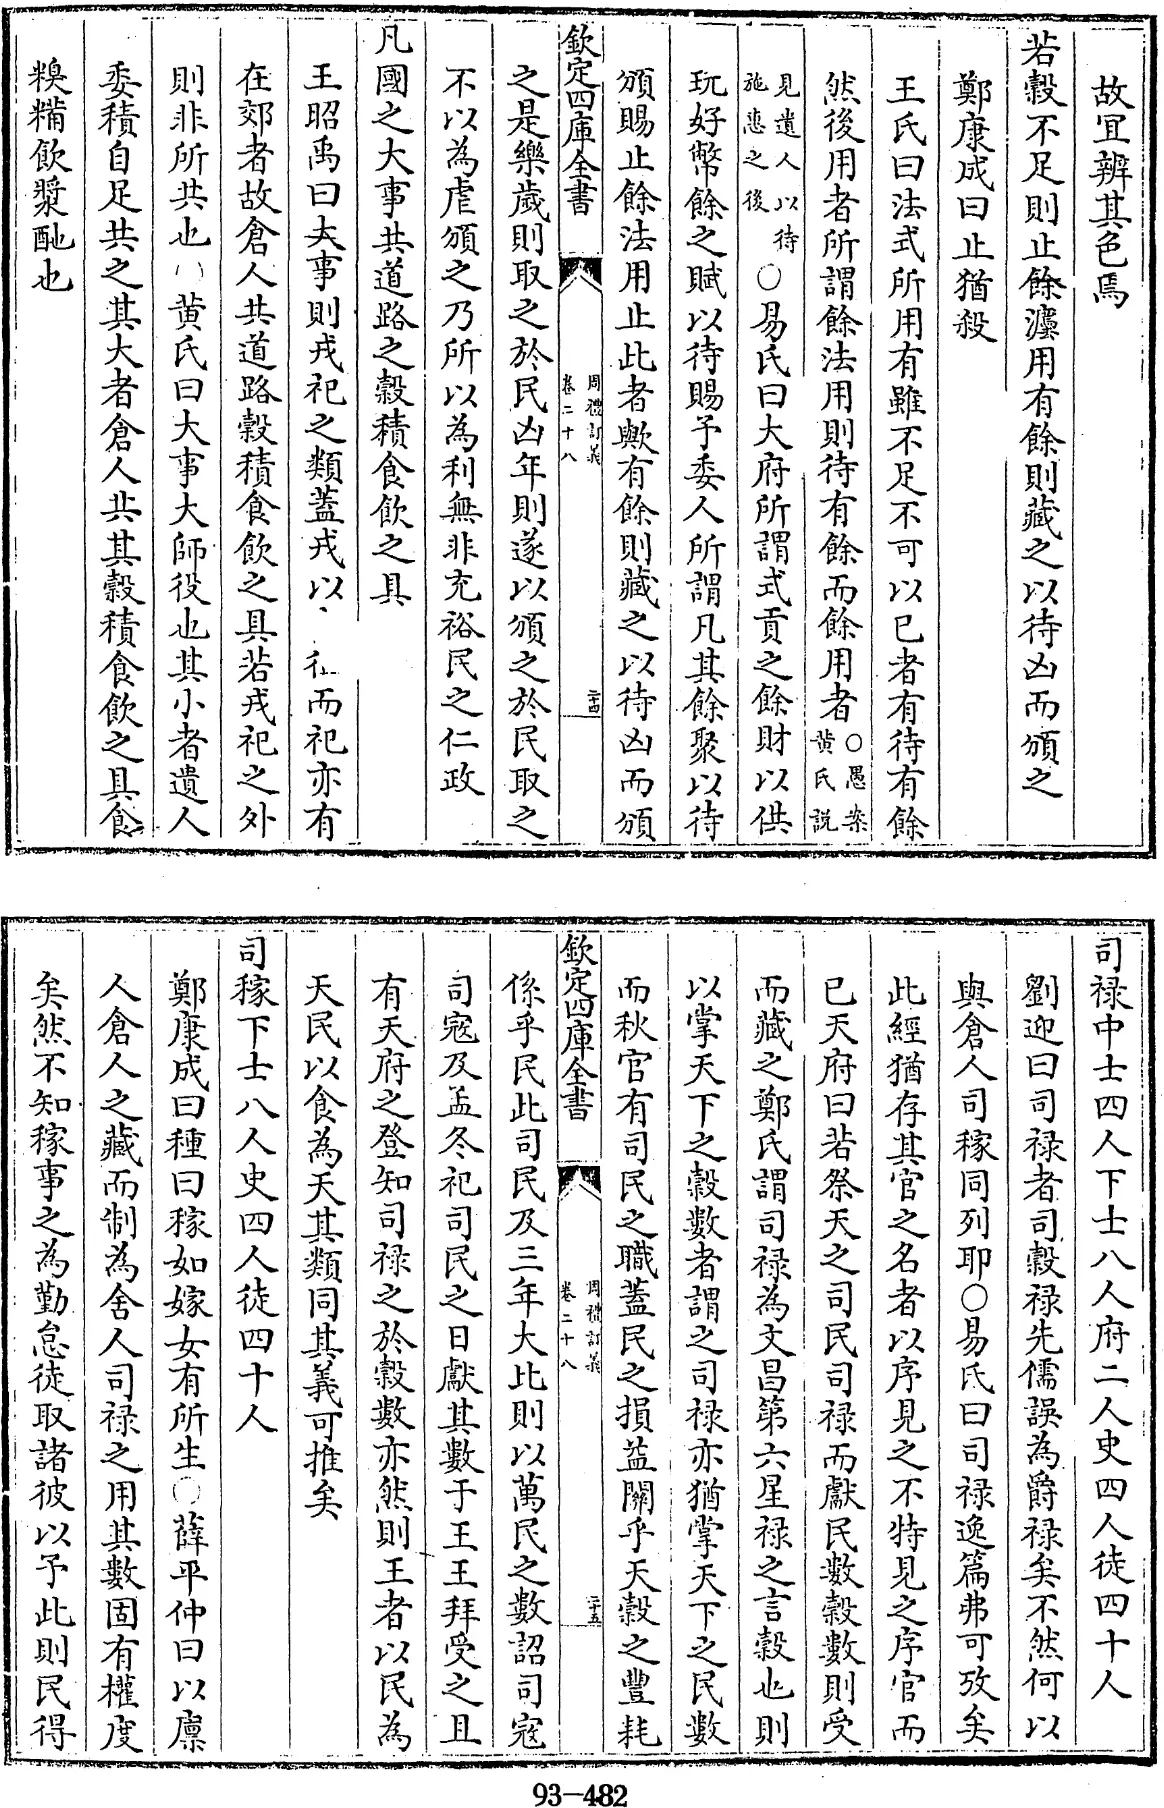 故宜辨其色焉
若穀不足則止餘灋用有餘則藏之以待凶而頒之
鄭康成曰止猶殺
王氏曰法式所用有雖不足不可以已者有待有餘
然後用者所謂餘法用則待有餘而餘用者○愚案黄氏説
見遺人以待施惠之後○易氏曰大府所謂式貢之餘財以供
玩好幣餘之賦以待賜予委人所謂凡其餘聚以待
頒賜止餘法用止此者歟有餘則藏之以待凶而頒
欽定四庫全書
周禮訂義
卷二十八
二十四
之是樂歲則取之於民凶年則遂以頒之於民取之
不以為虐頒之乃所以為利無非充裕民之仁政
凡國之大事共道路之穀積食飲之具
王昭禹曰大事則戎祀之類蓋戎以而祀亦有
在郊者故倉人共道路穀積食飲之具若戎祀之外
則非所共也○黄氏曰大事大師役也其小者遺人
委積自足共之其大者倉人共其穀積食飲之具食
糗糒飲漿酏也
司禄中士四人下士八人府二人史四人徒四十人
劉迎曰司禄者司穀禄先儒誤為爵禄矣不然何以
與倉人司稼同列耶○易氏曰司禄逸篇弗可攷矣
此經猶存其官之名者以序見之不特見之序官而
已天府曰若祭天之司民司禄而獻民數穀數則受
而藏之鄭氏謂司禄為文昌第六星禄之言穀也則
以掌天下之穀數者謂之司禄亦猶掌天下之民數
而秋官有司民之職蓋民之損益關乎天穀之豐耗
欽定四庫全書
周禮訂義
卷二十八
二十五
係乎民此司民及三年大比則以萬民之數詔司寇
司寇及孟冬祀司民之日獻其數于王王拜受之且
有天府之登知司禄之於穀數亦然則王者以民為
天民以食為天其類同其義可推矣
司稼下士八人史四人徒四十人
鄭康成曰種曰稼如嫁女有所生○薛平仲曰以廪
人倉人之藏而制為舍人司禄之用其數固有權度
矣然不知稼事之為勤怠徒取諸彼以予此則民得
93-482